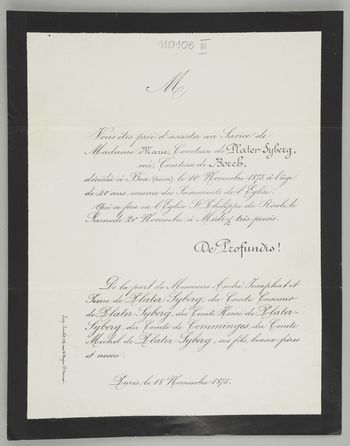 110106 III
M
Vous êtes prié d'assister au Service de
Madame Marie, Comtesse de Plater-Syberg,
née Comtesse de Borch,
décédée à Bex (Suisse), le 10 Novembre 1875, à l'âge
de 40 ans, munie des Sacrements de l'Eglise.
Qui se fera en l'Eglise St Philippe du Roule, le
Samedi 20 Novembre, à Midi très précis.
De Profundis!
De la part de Messieurs André Josaphat et
Pierre de Plater-Syberg, du Comte Casimir
de Plater-Syberg, du Comte Henri de Plater-
Syberg, du Comte de Comminges, du Comte
Michel de Plater-Syberg, ses fils, beaux-frères
et neveu.
Paris, le 18 Novembre 1875.